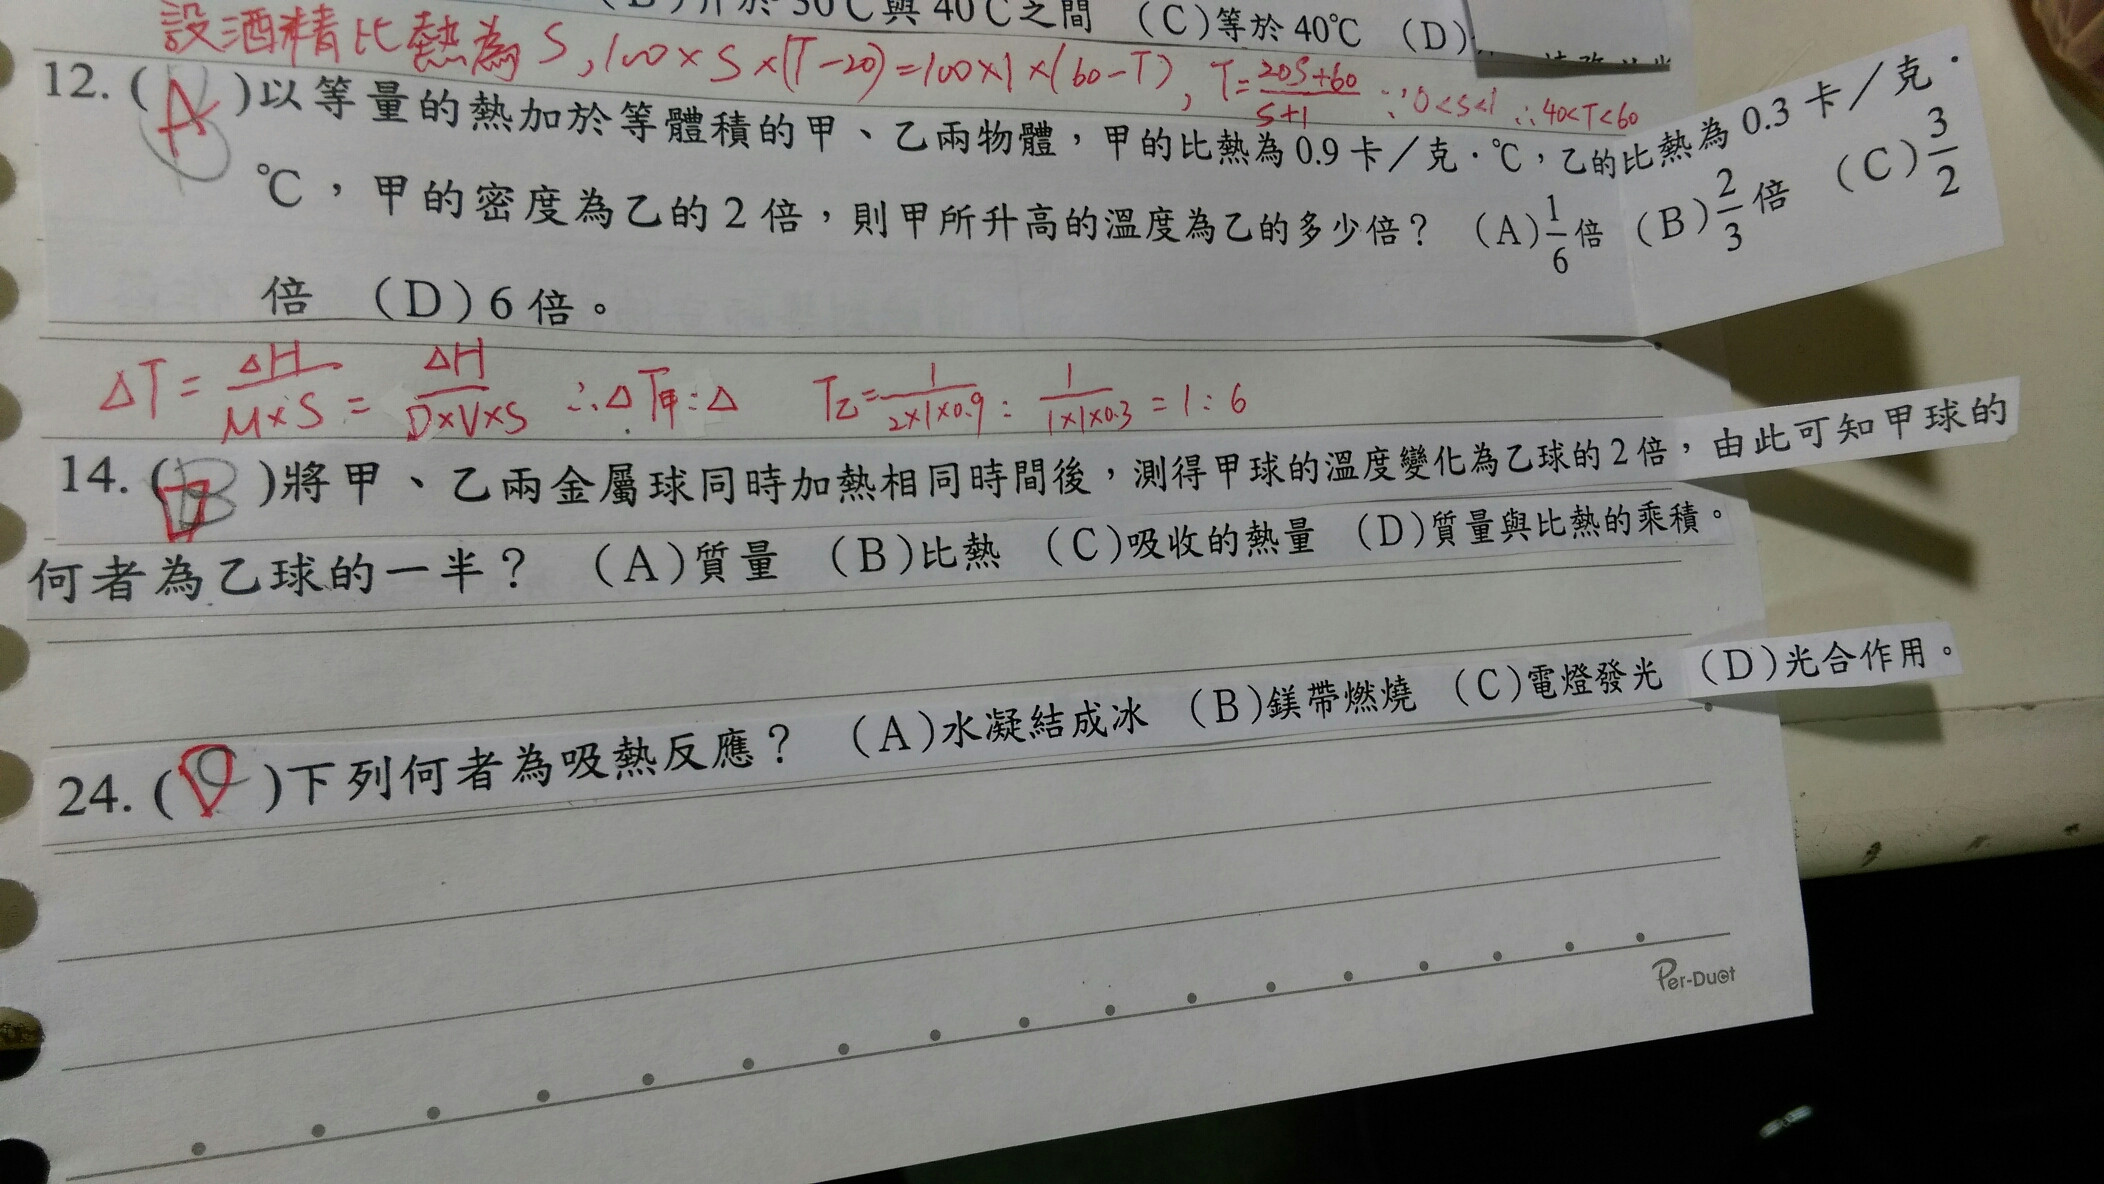 與40℃之間 (C)等於40℃ (D)
設酒精比熱為S,100×S×(T-20)=100×1×(60-T), T=20S+60/S+1 ∵0<S<1 ∴40<T<60
12.(A)以等量的熱加於等體積的甲、乙兩物體,甲的比熱為0.9卡/克·℃,乙的比熱為0.3卡/克·
℃,甲的密度為乙的2倍,則甲所升高的溫度為乙的多少倍? (A)1/6倍 (B)2/3倍 (C)3/2
倍 (D)6倍。
ΔT=ΔH/M×S=ΔH/D×V×S ∴ΔT甲:ΔT乙=1/2×1×0.9:1/1×1×0.3=1:6
14.(D)將甲、乙兩金屬球同時加熱相同時間後,測得甲球的溫度變化為乙球的2倍,由此可知甲球的
何者為乙球的一半? (A)質量 (B)比熱 (C)吸收的熱量 (D)質量與比熱的乘積。
24.(D)下列何者為吸熱反應? (A)水凝結成冰 (B)鎂帶燃燒 (C)電燈發光 (D)光合作用。
Per-Duet